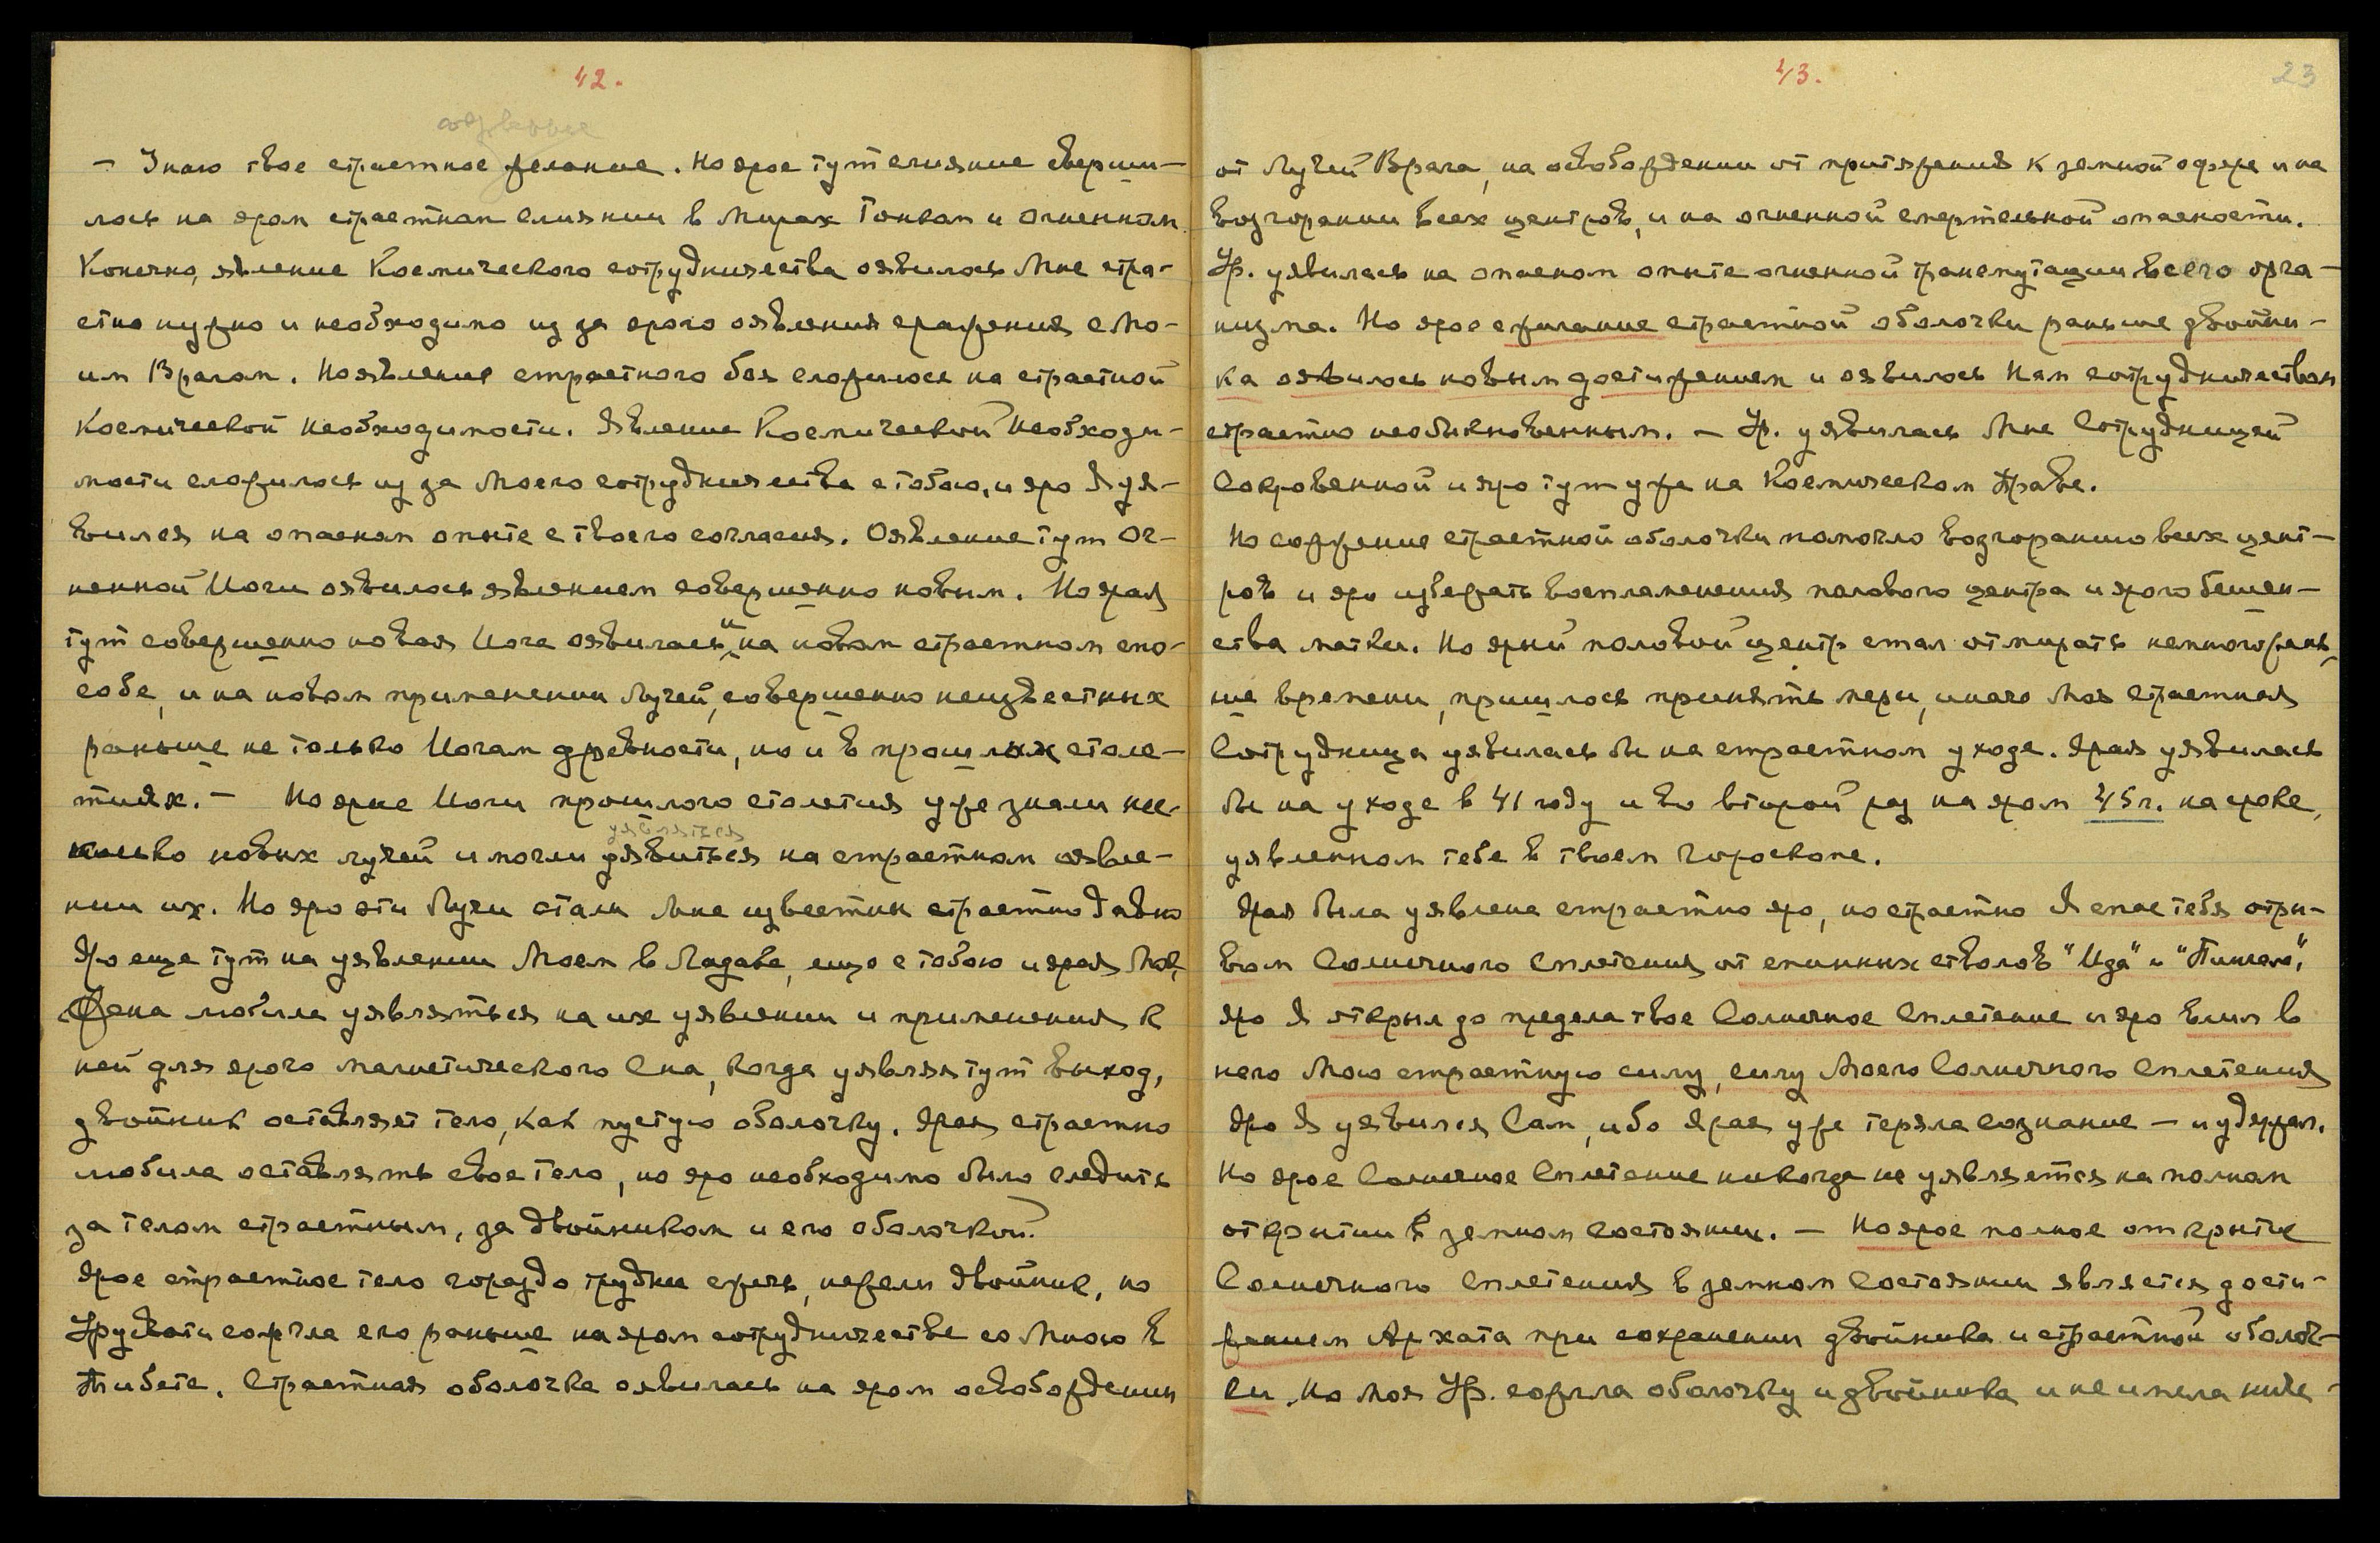 42.
– Знаю твое страстное желание. Но ярое тут слияние сверши-
лось на яром страстном слиянии в Мирах Тонком и Огненном.
Конечно, явление Космического сотрудничества оявилось Мне стра-
стно нужно и необходимо из за ярого оявления сражения с Мо-
им Врагом. Но явление страстного боя сложилось на страстной
Космической Необходимости. Явление Космической Необходи-
мости сложилось из за Моего сотрудничества с тобою, и яро Я уя-
вился на опасном опыте с твоего согласия. Оявление тут Ог-
ненной Иоги оявилось явлением совершенно новым. Но ярая
тут совершенно новая Иога оявилась и на новом страстном спо-
собе, и на новом применении Лучей, совершенно неизвестных
раньше не только Иогам древности, но и в прошлых столе-
тиях. – Но ярые Иоги прошлого столетия уже знали нес-
уявляться
колько новых лучей и могли уявиться на страстном оявле-
нии их. Но яро эти Лучи стали Мне известны страстно давно
Яро еще тут на уявлении Моем в Ладаке, еще с тобою и ярая Моя
Жена любила уявляться на их уявлении и применения к
ней для ярого магнетического Сна, когда уявляя тут выход,
двойник оставляет тело, как пустую оболочку. Ярая страстно
любила оставлять свое тело, но яро необходимо было следить
за телом страстным, за двойником и его оболочкой.
Ярое страстное тело гораздо труднее сжечь, нежели двойник, но
Урусвати сожгла его раньше на яром сотрудничестве со Мною в
Тибете. Страстная оболочка оявилась на яром освобождении
43.
23
от Лучей Врага, на освобождении от притяжения к земной сфере и на
возгорании всех центров, и на огненной смертельной опасности.
Ур. уявилась на опасном опыте огненной трансмутации всего орга-
низма. Но ярое сжигание страстной оболочки раньше двойни-
ка оявилось новым достижением и оявилось Нам сотрудничеством
страстно необыкновенным. – Ур. уявилась Мне Сотрудницей
Сокровенной и яро тут уже на Космическом Праве.
Но сожжение страстной оболочки помогло возгоранию всех цент-
ров и яро избежать воспламенения полового центра и ярого бешен-
ства матки. Но ярый половой центр стал отмирать немного рань-
ше времени, пришлось принять меры, иначе Моя страстная
Сотрудница уявилась бы на страстном уходе. Ярая уявилась
бы на уходе в 41 году и во второй раз на яром 45 г. на сроке,
уявленном тебе в твоем Гороскопе.
Ярая была уявлена страстно яро, но страстно Я спас тебя отры-
вом Солнечного Сплетения от спинных стволов "Ида" и "Пингала",
яро Я открыл до предела твое Солнечное Сплетение и яро влил в
него Мою страстную силу, силу Моего Солнечного Сплетения
Яро Я уявился Сам, ибо Ярая уже теряла сознание – и удержал.
Но ярое Солнечное Сплетение никогда не уявляется на полном
открытии в земном состоянии. – Но ярое полное открытие
Солнечного Сплетения в земном Состоянии является дости-
жением Архата при сохранении двойника и страстной оболоч-
ки. Но Моя Ур. сожгла оболочку и двойника и не имела ниче-